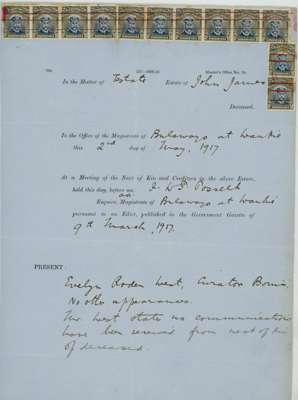 In the Matter of Estate Estate of John James
Deceased.
In the Office of the Magistrate of Bulawayo at Wankie
this 2nd day of May, 1917.
At a Meeting of the Next of Kin and Creditors in the above Estate,
held this day, before me
Esquire, Magistrate of Bulawayo at Wankie
pursuant to an Edict, published in the Government Gazette of
9th March, 1917.
PRESENT:
Evelyn Roden West, Curator Bonis.
No other appearances.
Mr West states no communications
have been received from next of kin
of deceased.